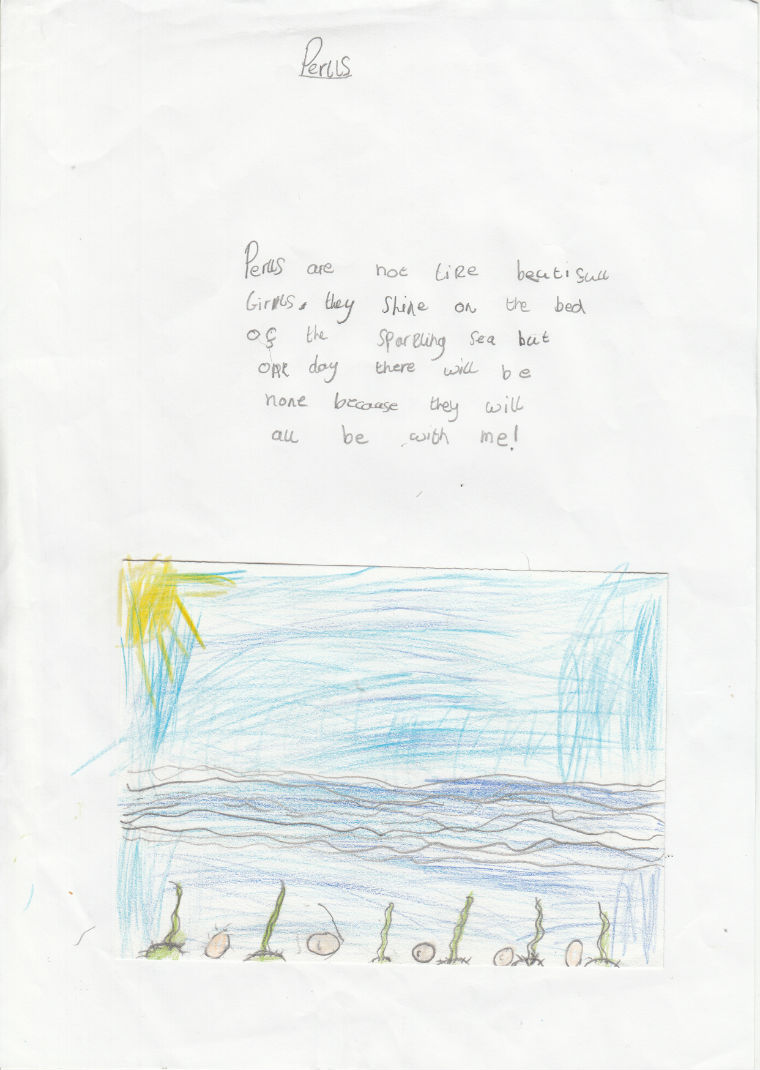 Perlls
Perlls are not like beatifull
Girlls, they shine on the bed
of the sparkling sea but
one day there will be
none because they will
all be with me!